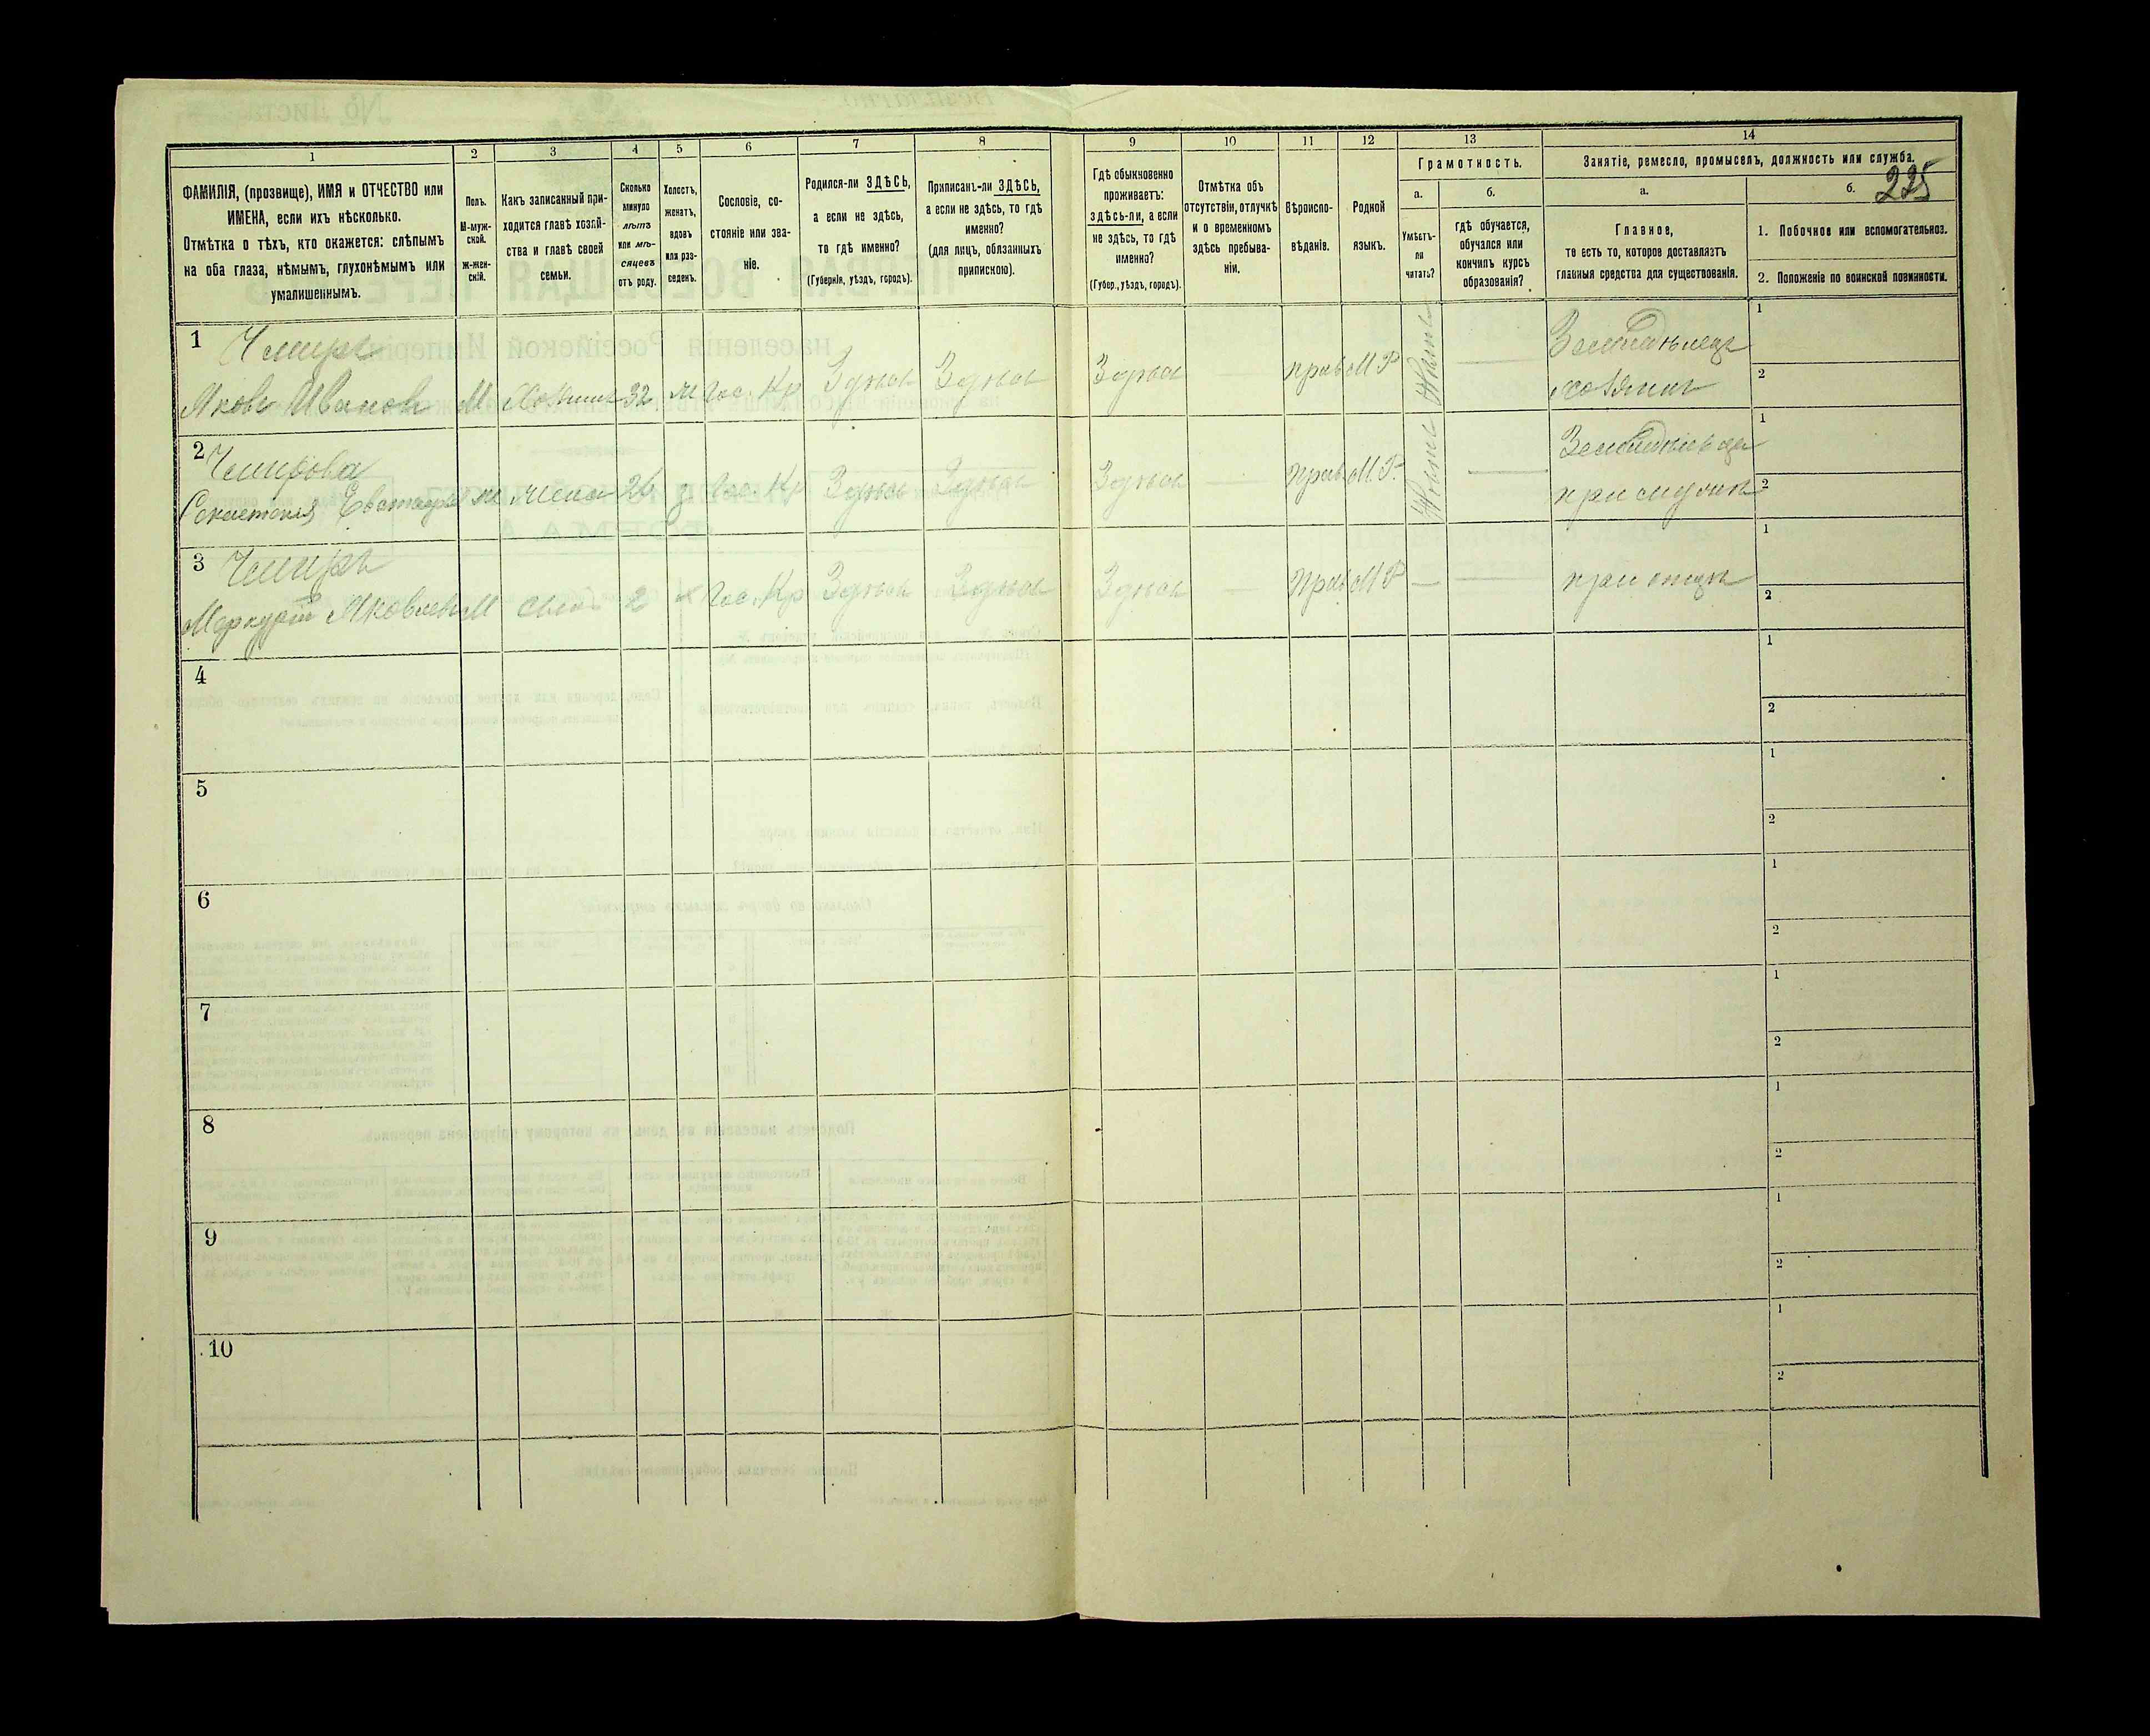 225
1
2
3
4
5
6
7
8
9
10
11
12
13
14
ФАМИЛІЯ, (прозвище), ИМЯ и ОТЧЕСТВО или
ИМЕНА, если ихъ нѣсколько.
Отмѣтка о тѣхъ, кто окажется: слѣпымъ
на оба глаза, нѣмымъ, глухонѣмымъ или
умалишеннымъ.
Полъ.
М-муж-
ской.
Ж-жен-
скій.
Какъ записанный при-
ходится главѣ хозяй-
ства и главѣ своей
семьи.
Сколько
минуло
лѣтъ
или мѣ-
сяцевъ
отъ роду.
Холостъ,
женатъ,
вдовъ
или раз-
веденъ.
Сословіе, со-
стояніе или зва-
ніе.
Родился-ли ЗДѢСЬ,
а если не здѣсь,
то гдѣ именно?
(Губернія, уѣздъ, городъ).
Приписанъ-ли ЗДѢСЬ,
а если не здѣсь, то гдѣ
именно?
(для лицъ, обязанныхъ
припискою).
Гдѣ обыкновенно
проживаетъ:
здѣсь-ли, а если
не здѣсь, то гдѣ
именно?
(Губер., уѣздъ, городъ).
Отмѣтка объ
отсутствіи, отлучкѣ
и о временномъ
здѣсь пребыва-
ніи.
Вѣроиспо-
вѣданіе.
Родной
языкъ.
Грамотность.
а.
Умѣетъ-
ли
читать?
б.
гдѣ обучается,
обучался или
кончилъ курсъ
образованія?
Занятіе, ремесло, промыселъ, должность или служба.
а.
Главное,
то есть то, которое доставляетъ
главныя средства для существованія.
б.
1. Побочное или вспомогательное.
2. Положеніе по воинской повинности.
1
Яковъ Ивановъ М 32 Гос. Кр Здѣсь Здѣсь Здѣсь — прав М Р —
Хозяинъ
1
2
2
26 Гос. Кр Здѣсь Здѣсь Здѣсь — Прав М. Р. —
1
2
3
Меркурій Яковлевъ М сынъ 2 х Гос. Кр Здѣсь Здѣсь Здѣсь — Прав М Р — — при отцѣ
1
2
4
1
2
5
1
2
6
1
2
7
1
2
8
1
2
9
1
2
10
1
2